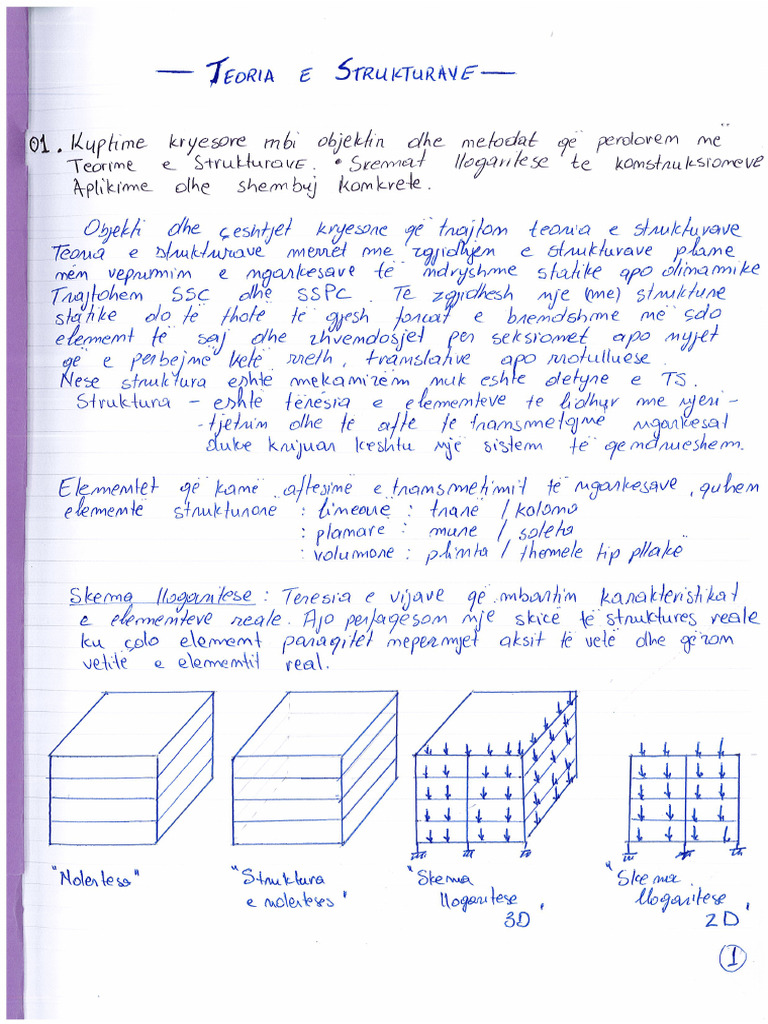 — TEORIA E STRUKTURAVE —
01. Kuptime kryesore mbi objektin dhe metodat që perdoren në
Teorine e Strukturave. • Skemat llogaritese te konstruksioneve
Aplikime dhe shembuj konkrete.
Objekti dhe çeshtjet kryesore që trajton teoria e strukturave
Teoria e strukturave merret me zgjidhjen e strukturave plane
nën veprimin e ngarkesave të ndryshme statike apo dinamike
Trajtohen SSC dhe SSPC. Te zgjidhesh nje (ne) strukture
statike do të thotë të gjesh forcat e brendshme në çdo
element të saj dhe zhvendosjet per seksionet apo nyjet
që e përbejnë vetë rreth, translative apo rrotulluese.
Nese struktura eshtë mekanizëm nuk eshte detyre e TS.
Struktura – eshtë tëresia e elementeve te lidhur me njeri-
-tjetrin dhe të afte te transmetojnë ngarkesat
duke krijuar keshtu një sistem të qendrueshem.
Elementet që kanë aftesinë e transmetimit të ngarkesave, quhen
elemente strukturore : lineare : trare / kolona
: planare : mure / soleta
: volumore : plinta / themele tip pllakë
Skema llogaritese : Teresia e vijave që mbartin karakteristikat
e elementeve reale. Ajo perfaqeson nje skicë të struktures reale
ku çdo element paraqitet nepermjet aksit të vetë dhe gëzon
vetitë e elementit real.
"Ndertesa"
"Struktura
e nderteses"
"Skema
llogaritese
3D"
"Skema
llogaritese
2D"
1